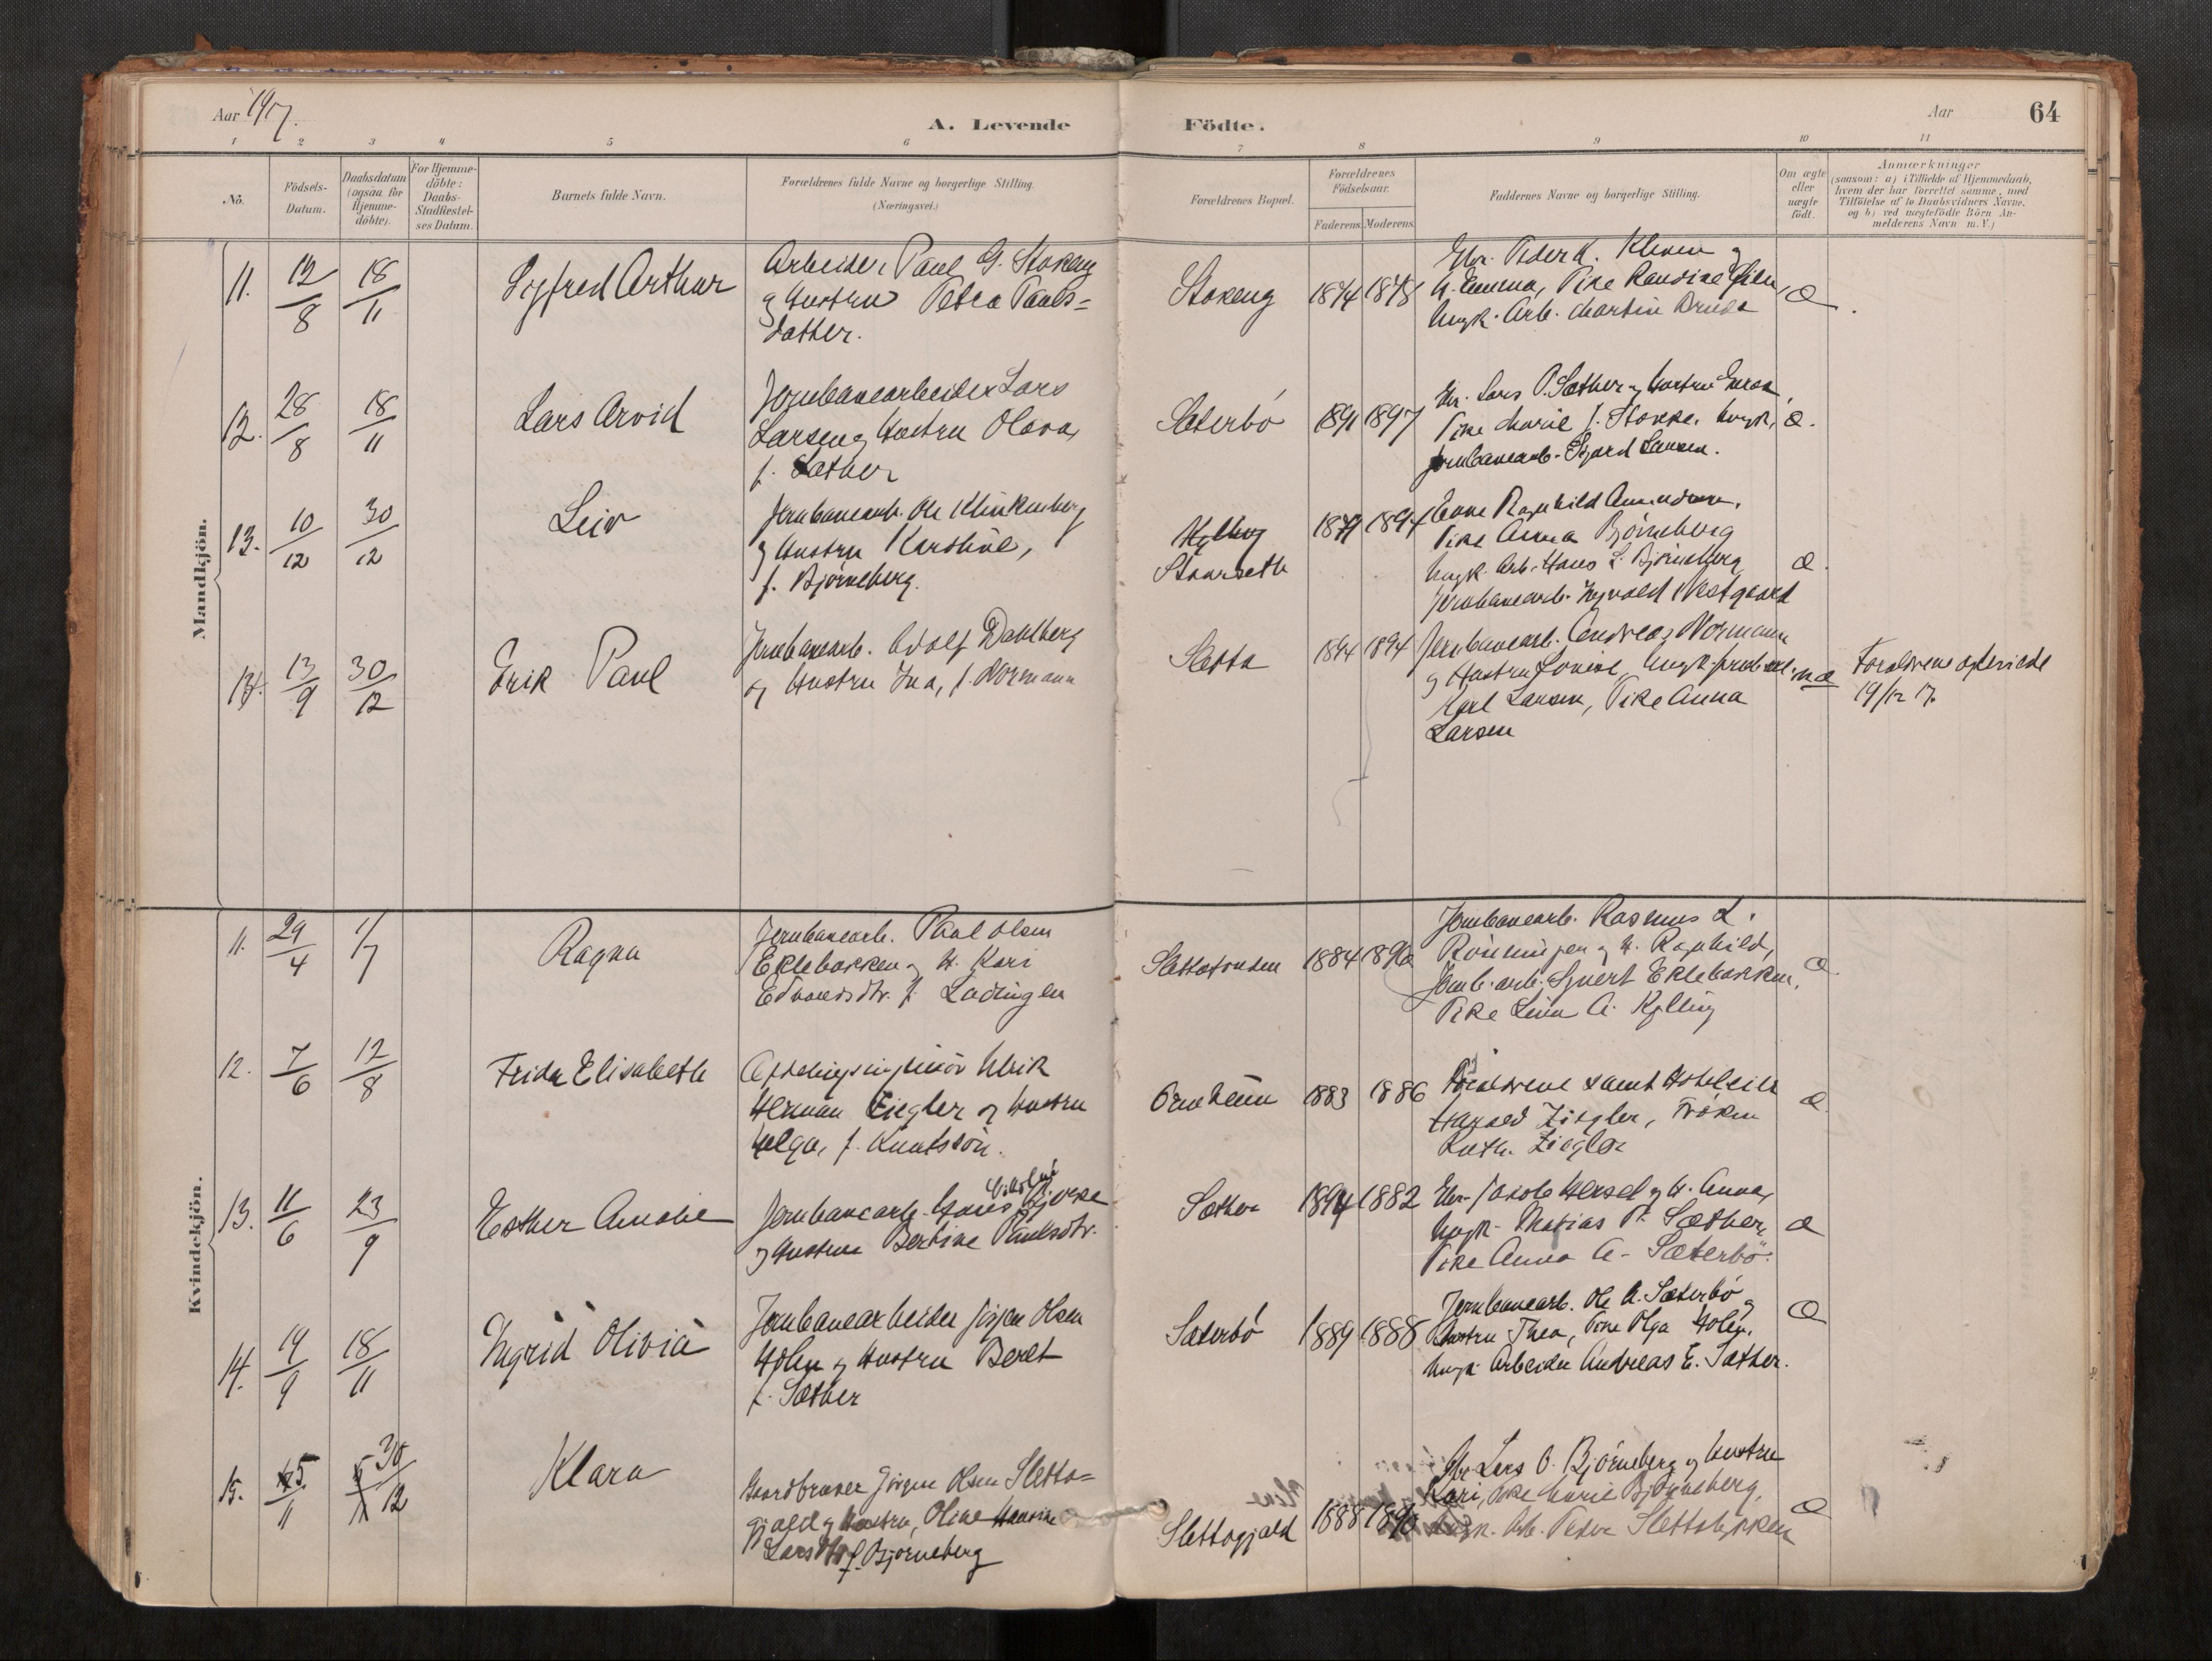 Aar 1917.
A. Levende Födte.
Aar 64
1 2 3 4 5 6 7 8 9 10 11
No.
Födsels-Datum.
Daabsdatum (ogsaa for Hjemme-döbte).
For Hjemme-döbte: Daabs-Stadfæstel-ses Datum.
Barnets fulde Navn.
Forældrenes fulde Navne og borgerlige Stilling. (Næringsvei.)
Forældrenes Bopæl.
Forældrenes Födselsaar.
Faderens. Moderens.
Faddernes Navne og borgerlige Stilling.
Om ægte eller uægte födt.
Anmærkninger
(saasom: a) i Tilfælde af Hjemmedaab, hvem der har forrettet samme, med Tilföielse af to Daabsvidners Navne. og b) ved uægtefödte Börn An-melderens Navn m.V.)
Mandkjön.
11. 12/8 18/11 Sigfred Arthur
Arbeider Paul G. Stokeng
og Hustru Petra Pauls=
datter.
Stokeng 1874 1878
Gbr. Peder K. Kleven og
H. Emma, Pike Randine
Ungk. Arb. Martin
æ.
12. 28/8 18/11 Lars Arvid
Jernbanearbeider Lars
Larsen og Hustru Olava,
f. Sæther
Sæterbö 1891 1897
Gbr. Lars P. Sæther og Hustru
Pike Marie J. Stokke. Ungk.
Jernbanearb. Larsen.
æ.
13. 10/12 30/12 Leiv
Jernbanearb. Ole Klinkenberg
og Hustru Karoline,
f. Björneberg.
Kylling
Stuorseth
1894
Ragnhild Amundsen,
Pike Anna Björneberg
Ungk. Arb. Hans L. Björneberg
Jernbanearb. Ingvald Vestgaard
æ.
14. 13/9 30/12 Erik Paul
Jernbanearb. Adolf Dahlberg
og Hustru Ina, f. Normann
Sletta 1894 1894
Jernbanearb. Andreas Normann
og Hustru Lovise, Ungk.
Karl Larsen, Pike Anna
Larsen
uæ
Forældrene ægteviede
19/12 17.
Kvindekjön.
11. 29/4 1/7 Ragna
Jernbanearb. Paul Olsen
Eklebakken og H. Kari
Edvardsdtr. f. Lödingen
1884 1890
Jernbanearb. Rasmus L.
Rönningen og H. Ragnhild,
Jernb.arb. Syvert Eklebakken,
Pike Lina A. Kylling
æ.
12. 7/6 12/8 Frida Elisabeth
Afdelingsingeniör Ulrik
Herman Ziegler og Hustru
Helga, f. Knutsson.
Ormheim 1883 1886
Forældrene samt Hoteleier
Harald Ziegler, Fröken
Ruth. Ziegler
æ.
13. 11/6 23/9 Esther Amalie
Jernbanearb. Hans Bjerke
og Hustru Bertine Paulsdtr.
Sæther 1894 1882
Gbr. Jakob Hersel og H. Anna,
Ungk. Matias P. Sæther,
Pike Anna A. Sæterbö.
æ
14. 19/9 18/11 Ingrid Olivia
Jernbanearbeider Jörgen Olsen
Holen og Hustru Beret
f. Sæther
Sæterbö 1889 1888
Jernbanearb. Ole A. Sæterbö og
Hustru Thea, Pike Olga Holen.
Ungk. Arbeider Andreas E. Sæther.
æ
15. 5/11 30/12 Klara
Gaardbruker Jörgen Olsen Sletta=
gjald og Hustru, Oline
Larsdtr f. Björneberg
Slettagjald 1888 1890
Gbr. Lars O. Björneberg og Hustru
Kari, Pike Marie Björneberg,
Ungk. Arb. Peder Slettabakken
æ